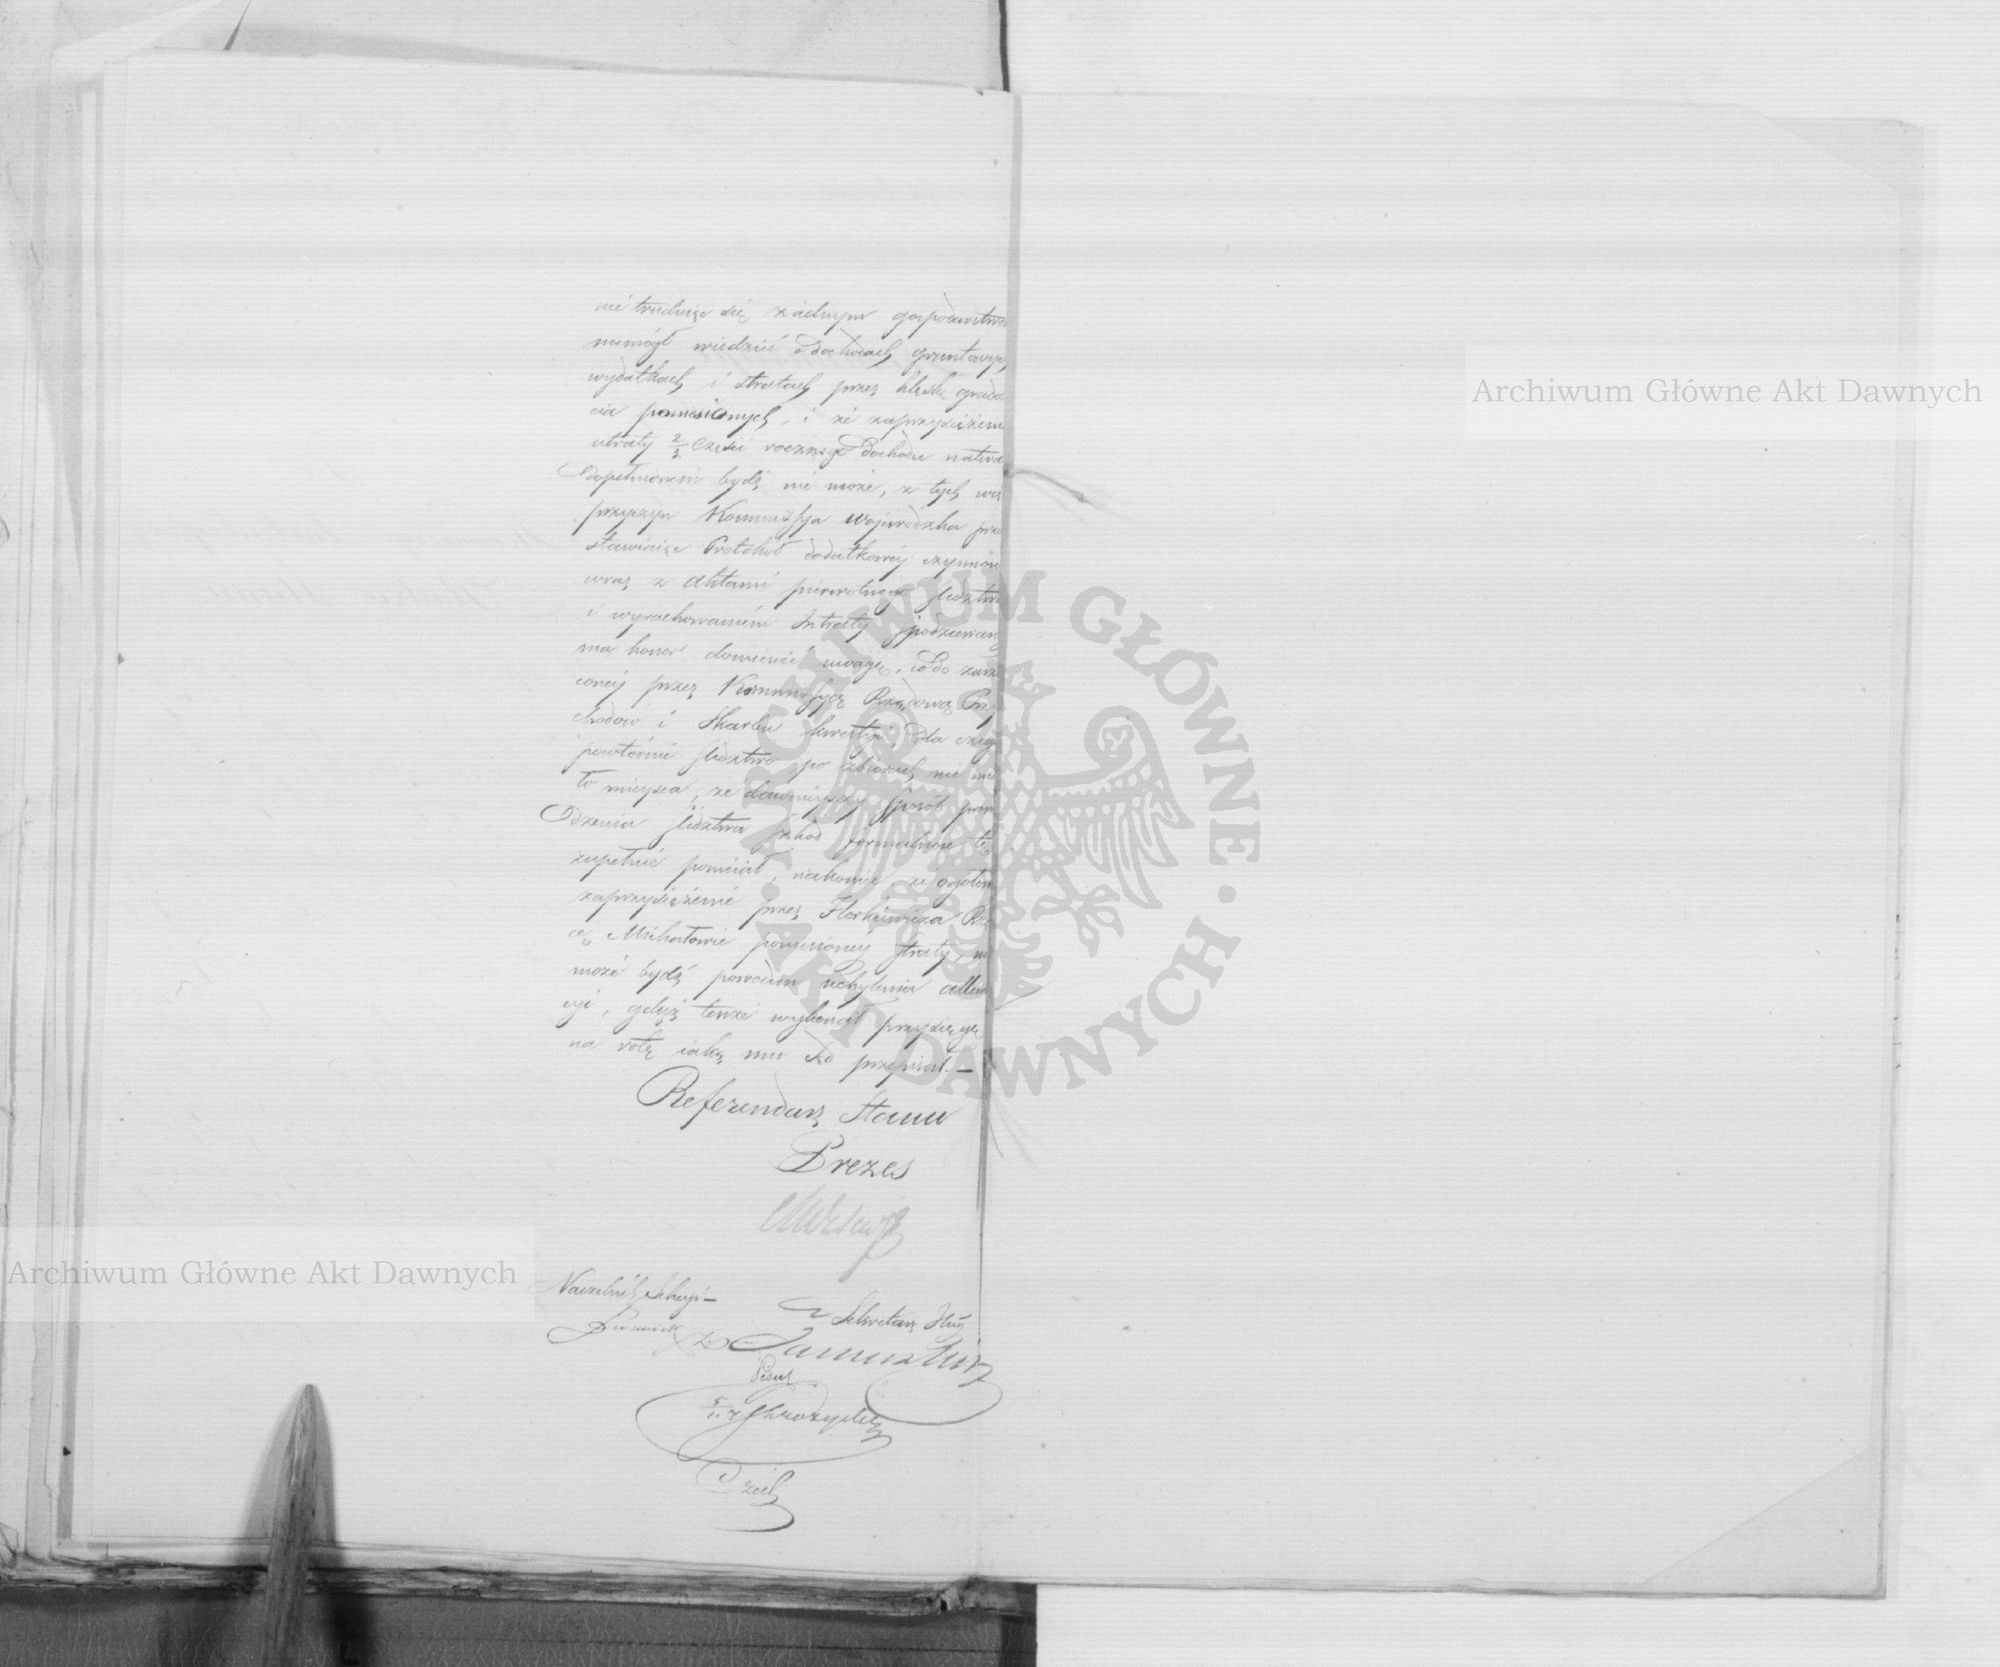 nie trudniąc się żadnym gospodarstwe
niemógł wiedzieć o dochodach gruntowych,
wydatkach i stratach przez klęskę grado
cia poniesionych, i że zaprzysiężeniu
utraty 2/3 części rocznego dochodu
dopełnionem bydź nie może, z tych wsz
przyczyn Kommissyja Wojewódzka prze
stawiaiąc Protokół dodatkowéy czynnoś
wraz z Aktami pierwotnego śledztwa
i wyrachowaniem Intraty spodziewan
ma honor donieść uwagę, co do zarzu
coney przez Kommissyią Rządową Przy
chodów i Skarbu kwestyi, dla czego
powtórnie śledztwo po zbiorach nie mia
to mieysca, że dawnieyszy sposób prow
dzenia śledztwa szkód formalność tę
zupełnie pomiiał, nakoniec że
zaprzysiężenie przez Florkiewicza Rzą
cę Michałowic poniesioney straty, ni
może bydź powodem uchylenia allew
cyi, gdyż tenże wykonał przysięgę
na rotę iaką mu Sąd przepisał. —
Referendarz Stanu
Prezes
Naczelnik Sekcyi —
Sekretarz
Pisał
Archiwum Główne Akt Dawnych
Archiwum Główne Akt Dawnych
· ARCHIWUM GŁÓWNE · AKT DAWNYCH